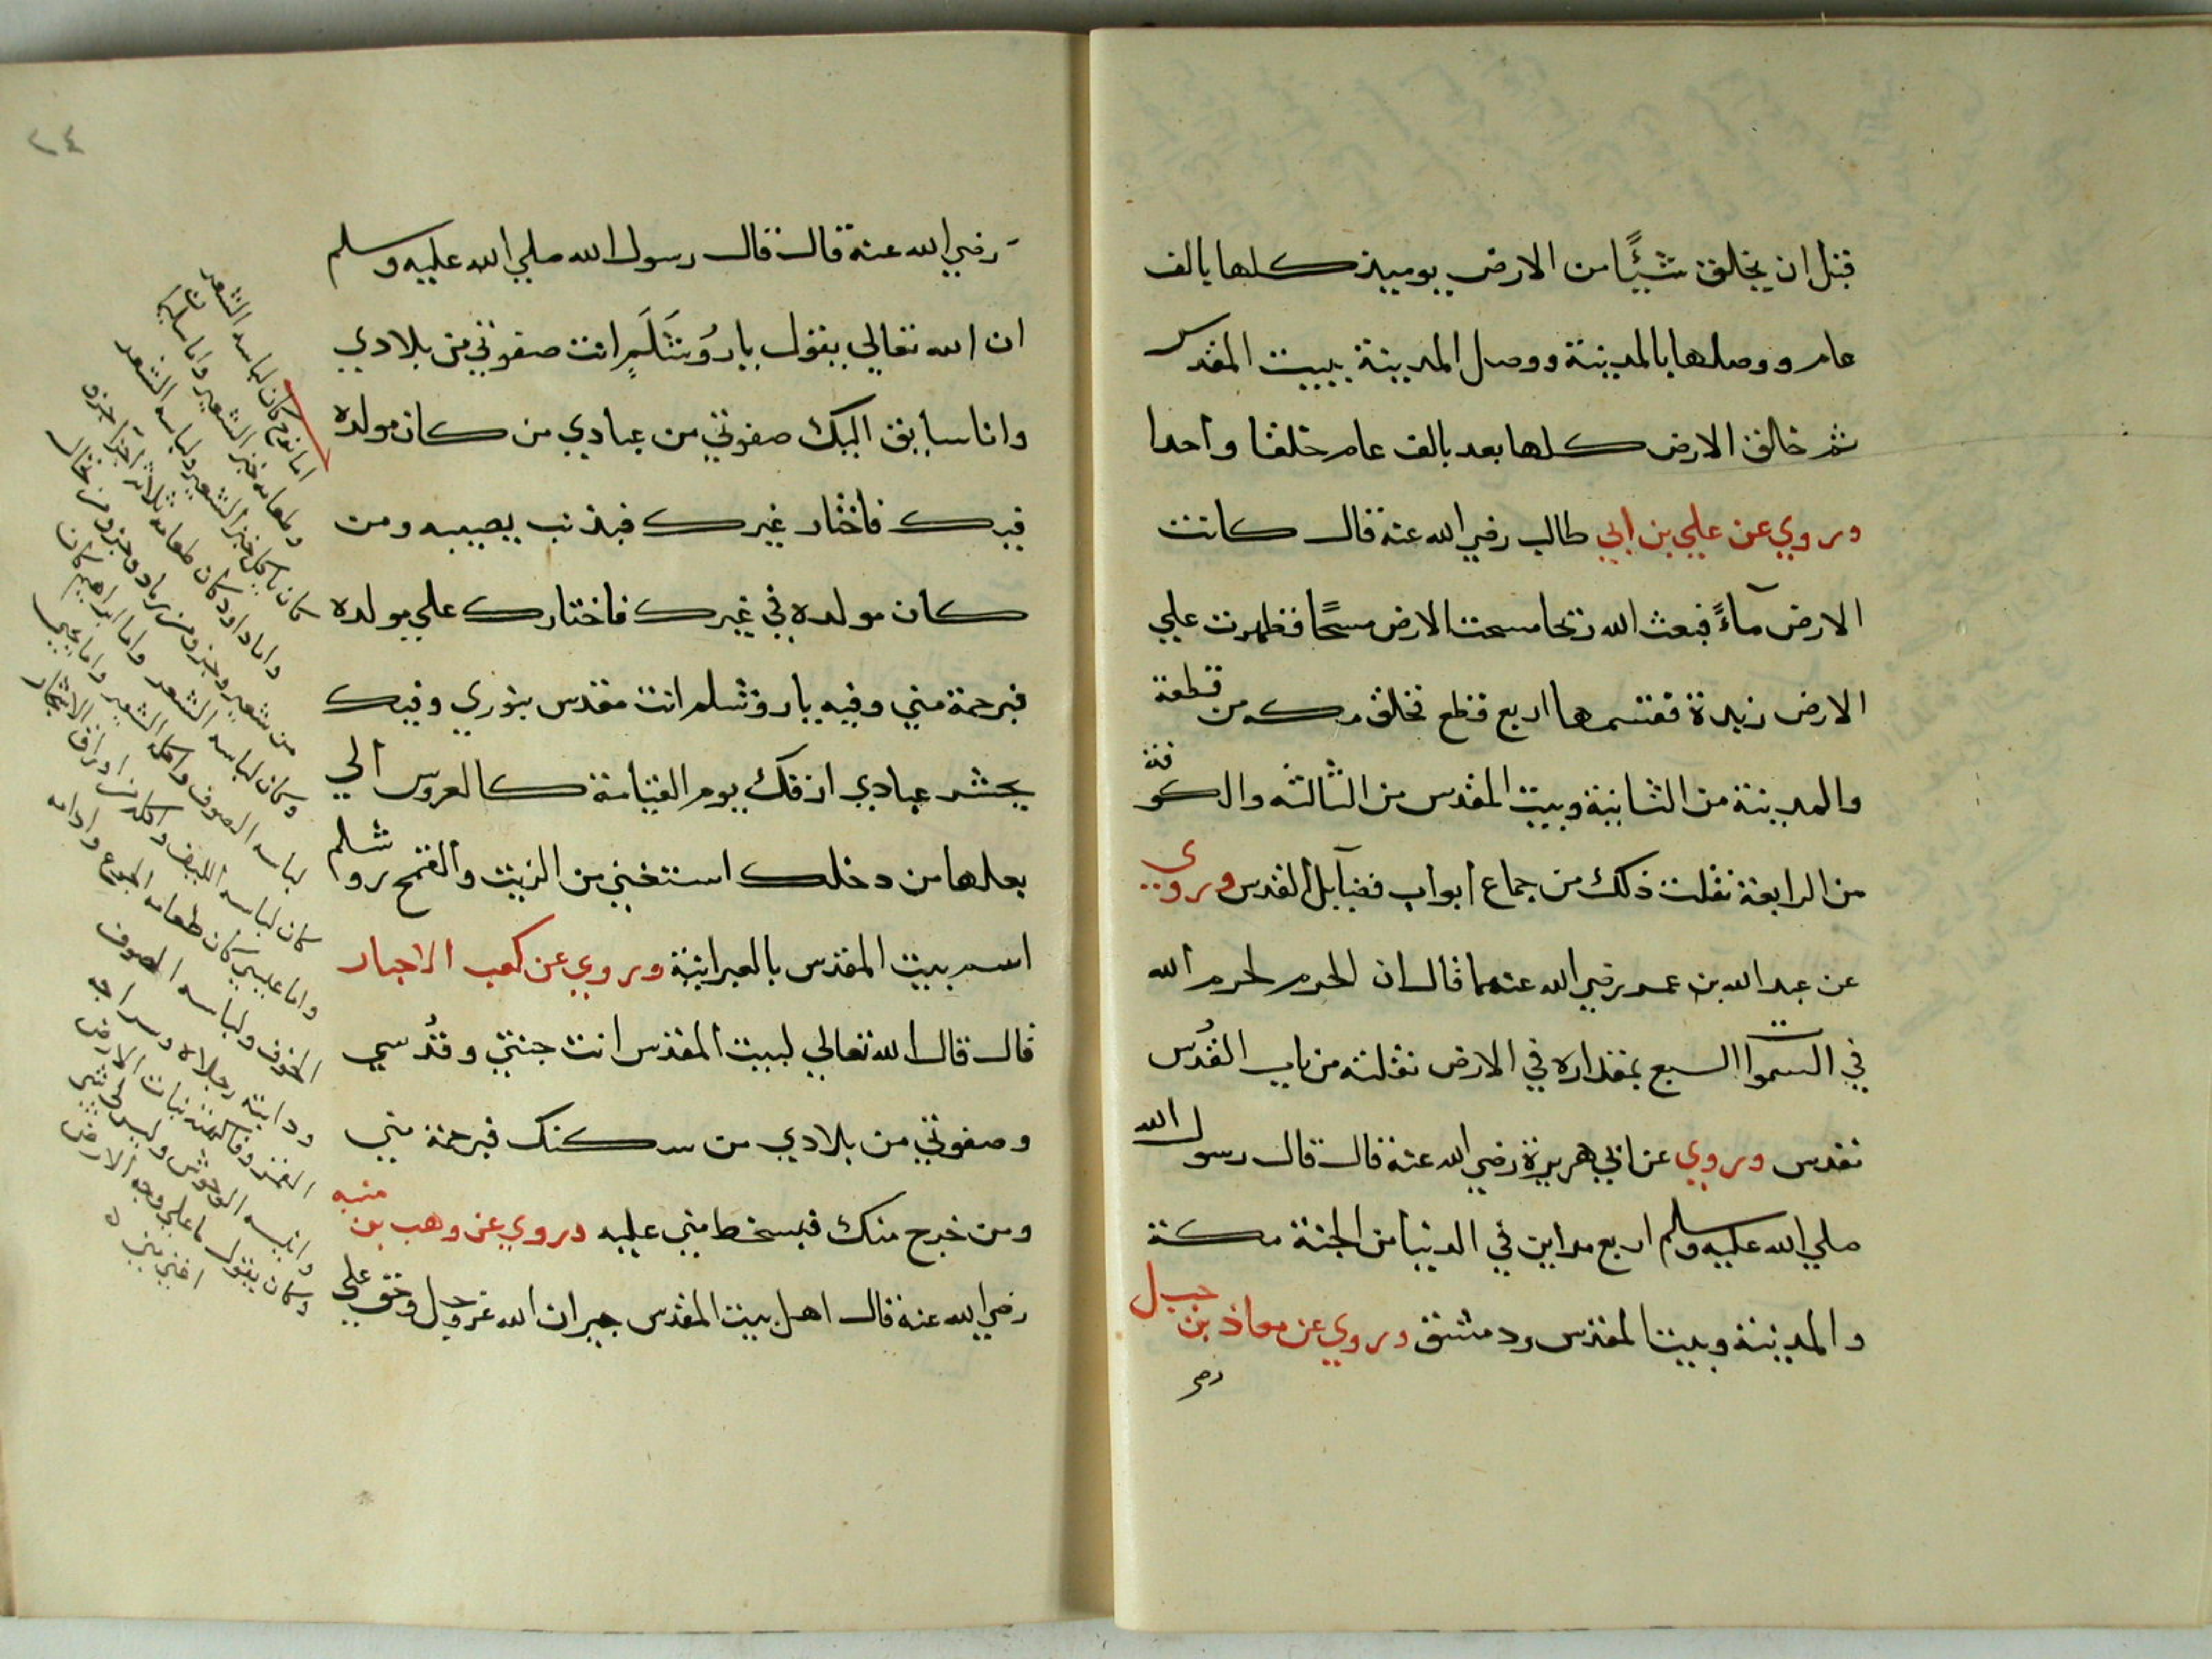 قبل ان يخلق شئًا من الارض يوميذ كلها بالف
عام ووصلها بالمدينة ووصل المدينة ببيت المقدس
ثم خالق الارض كلها بعد بالف عام خلقا واحدا
وروي عن علي بن ابي طالب رضي الله عنه قال كانت
الارض مآءً فبعث الله ريحا مسحت الارض مسحًا فظهرت علي
الارض زبدة فقسمها اربع قطع فخلق مكه من قطعة
والمدينة من الثانية وبيت المقدس من الثالثه والكوفة
من الرابعة نقلت ذلك من جماع ابواب فضآيل القدس وروي
عن عبد الله بن عمر رضي الله عنهما قال ان الحرم لحرم الله
في السموات السبع بمقداره في الارض نقلته من باب القُدس
تقدس وروي عن ابي هريرة رضي الله عنه قال قال رسول الله
صلي الله عليه وسلم اربع مداين في الدنيا من الجنة مكة
والمدينة وبيت المقدس ودمشق وروي عن معاذ بن جبل
رضي
رضي الله عنه قال قال رسول الله صلي الله عليه وسلم
ان الله تعالي يقول يارُوشَلَمِ انت صفوتي من بلادي
وانا سايق اليك صفوتي من عبادي من كان مولده
فيك فاختار غيرك فبذنب يصيبه ومن
كان مولده في غيرك فاختارك علي مولده
فبرحمة مني وفيه ياروشلم انت مقدس بنوري وفيك
يحشر عبادي ازفك يوم القيامة كالعروس الي
بعلها من دخلك استغني من الزيت والقمح روا شلم
اسم بيت المقدس بالعبرانية وروي عن كعب الاحبار
قال قال الله تعالي لبيت المقدس انت جنتي وقدُسي
وصفوتي من بلادي من سكنك فبرحمة مني
ومن خرج منك فبسخط مني عليه وروي عن وهب بن منبه
رضي الله عنه قال اهل بيت المقدس جيران الله عز وجل وحق علي
٢٤
اما نوح كان لباسه الشعر
وطعامه خبز الشعير واما سليمان
كان ياكل خبز الشعير ولباسه الشعر
واما داود كان طعامه ثلاثة اجزا جزو
من شعير وجزو من رماد وجزو من نخال
وكان لباسه الشعر واما ابراهيم كان
لباسه الصوف واكل الشعير واما يحيي
كان لباسه الليف واكله من اوراق الاشجار
واما عيسي كان طعامه الجوع وادامه
الخوف ولباسه الصوف
ودابته رجلاه وسراجه
القمر وفاكهته نبات الارض
وانيسه الوحوش وليس له شي
وكان يقول ما علي وجه الارض
اغني مني